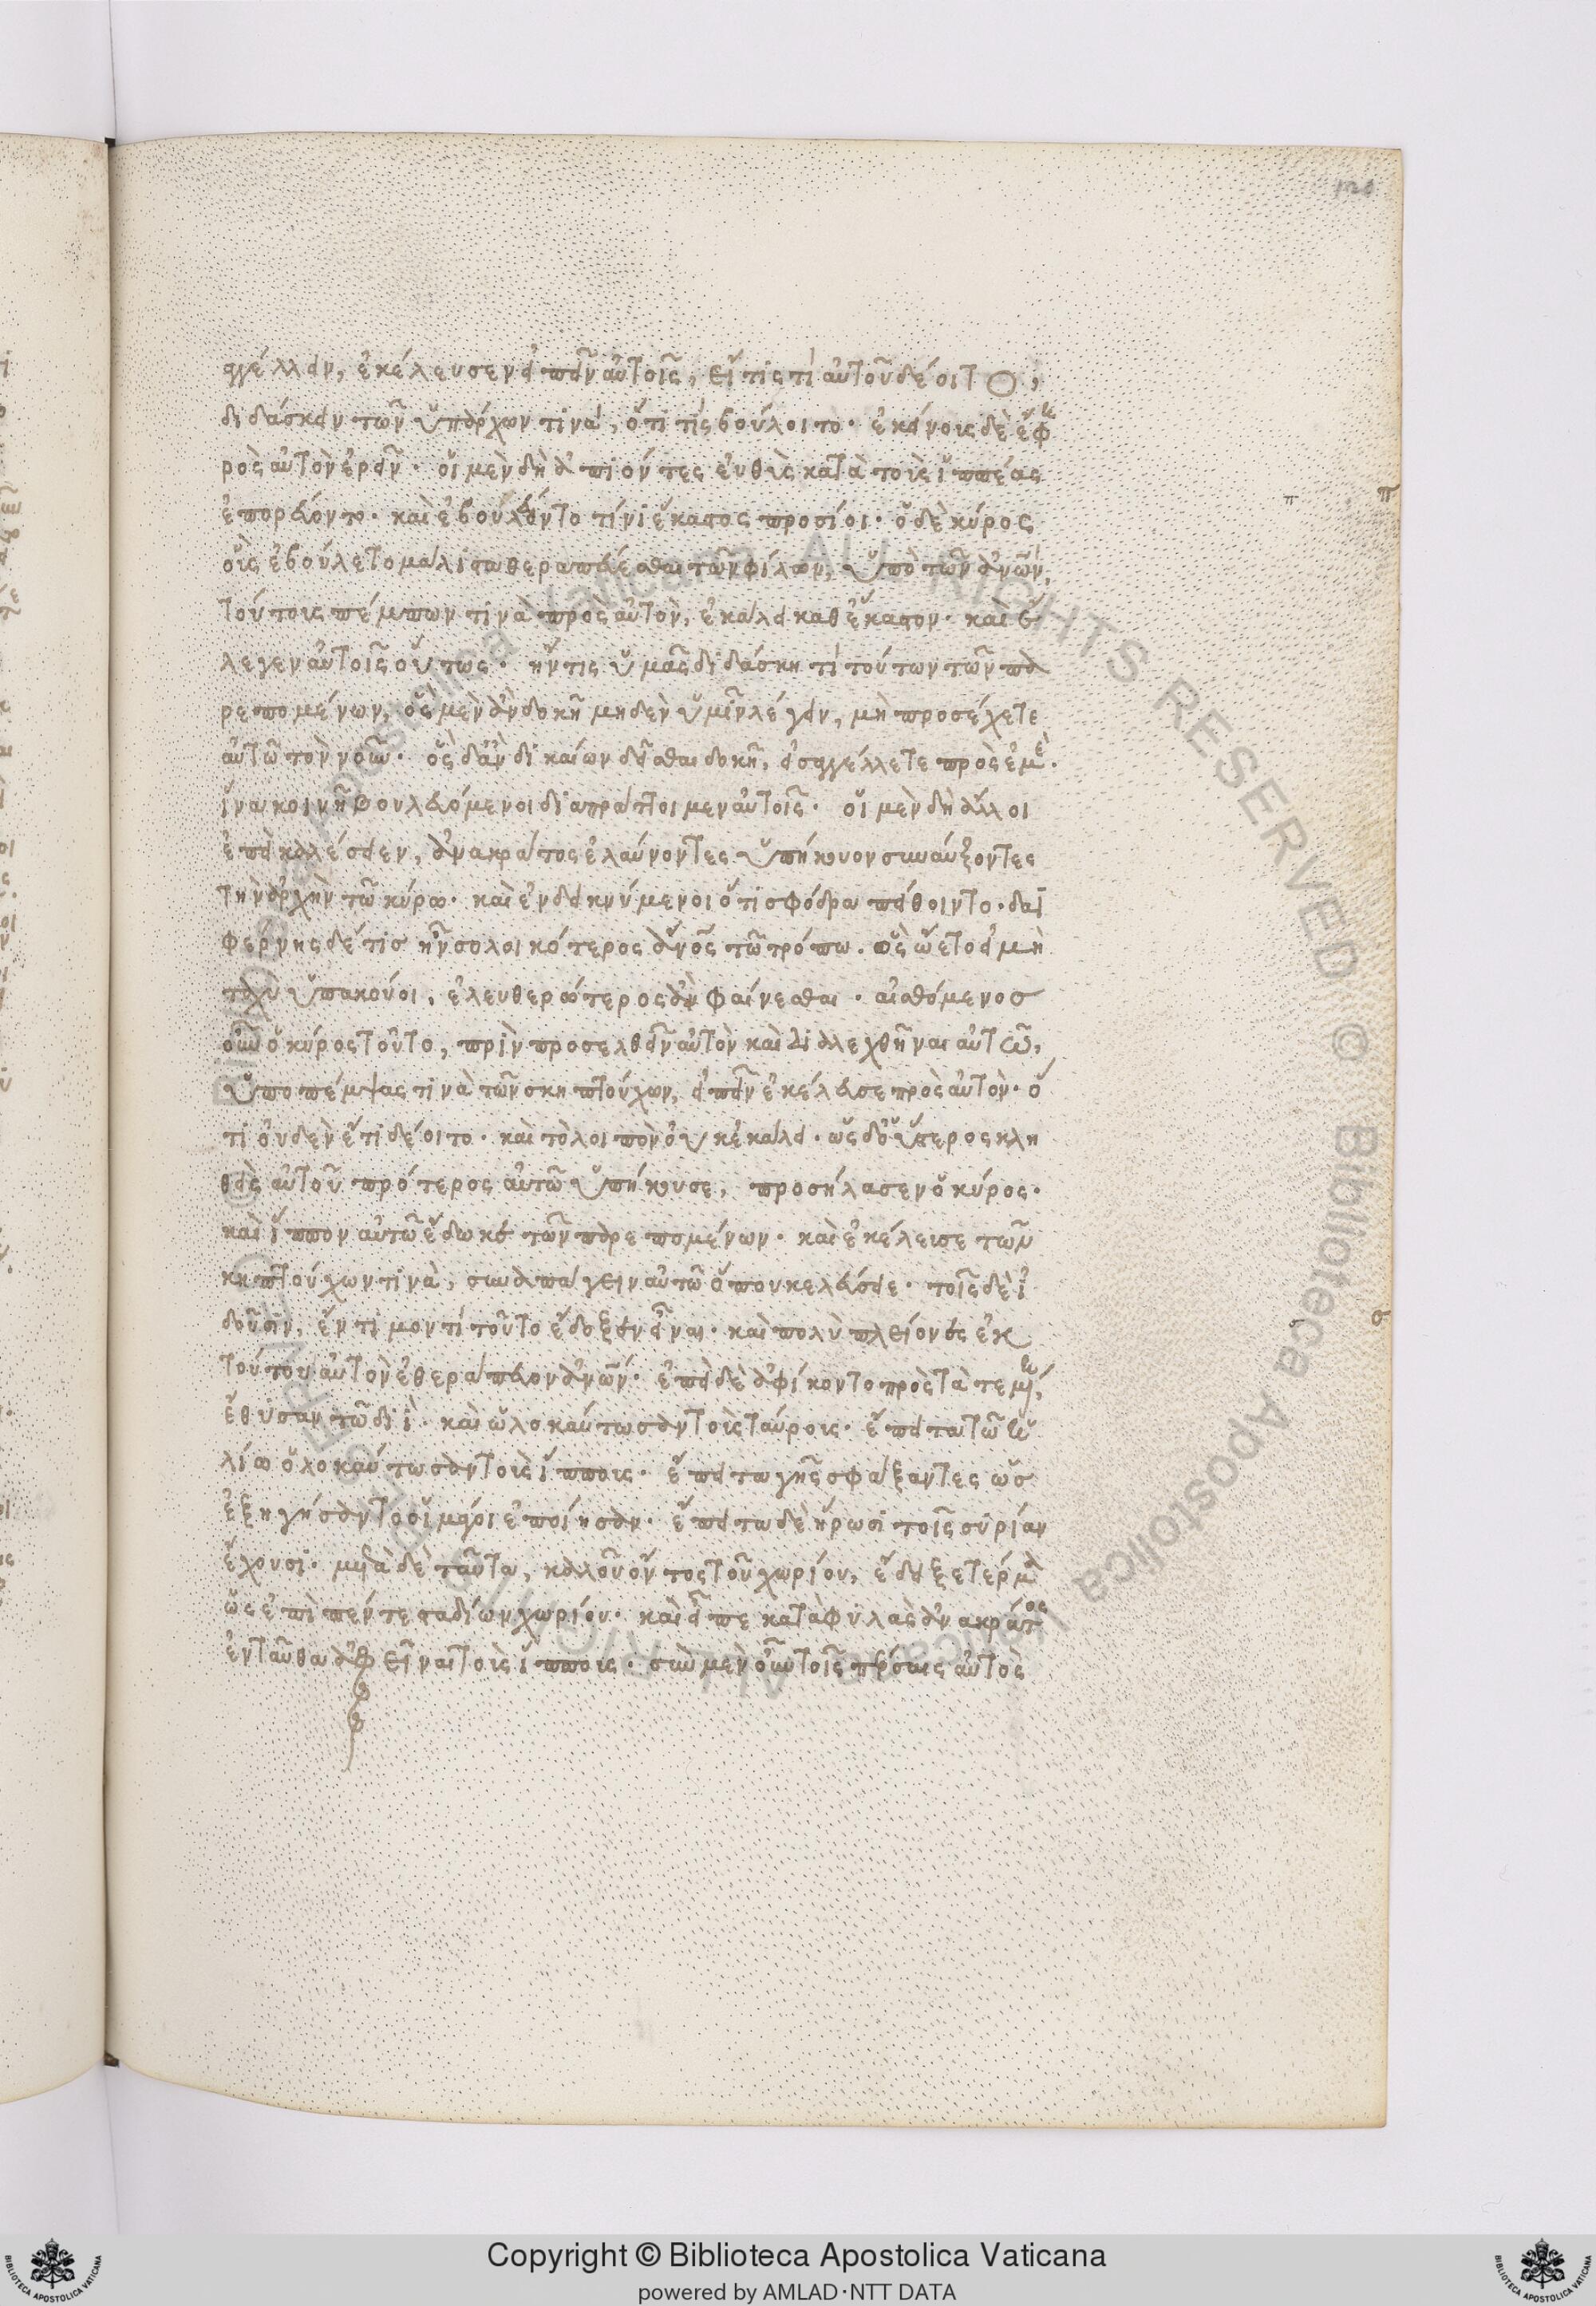 120
αγγέλλειν, ἐκέλευσεν εἰπεῖν αὐτοῖς, εἴ τίς τι αὐτοῦ δέοιτο,
διδάσκειν τῶν ὑπάρχων τινὰ, ὅτι τίς βούλοιτο. ἐκείνοις δὲ ἔφη
ρὸς αὐτὸν ἐρεῖν. οἱ μὲν δὴ ἀπιόντες εὐθὺς κατὰ τοὺς ἱππέας
ἐπορεύοντο. καὶ ἐβουλεύοντο τίνι ἕκαστος προσίοι. ὁ δὲ κύρος
οὓς ἐβούλετο μάλιστα θεραπεύεσθαι τῶν φίλων, ὑπὸ τῶν ἀνων,
τούτους πέμπων τινὰ πρὸς αὐτὸν, ἐκάλει καθέκαστον. καὶ ἔ
λεγεν αὐτοῖς οὕτως. ἤν τις ὑμᾶς διδάσκῃ τὶ τούτων τῶν πα
ρεπομένων, ὃς μὲν ἂν δοκῆ μηδὲν ὑμῖν λέγειν, μὴ προσέχετε
αὐτῶ τὸν νοῦν. ὃς δἂν δικαίων δεῖσθαι δοκῆ, εἰσαγγέλλετε πρὸς ἐμὲ.
ἵνα κοινῆ βουλευόμενοι διαπράττοιμεν αὐτοῖς. οἱ μὲν δὴ ἄλλοι
ἐπεὶ καλέσειεν, ἀνακράτος ἐλαύνοντες ὑπήκουον συναύξοντες
τὴν ἀρχὴν τῶ κύρω. καὶ ἐνδεικνύμενοι ὅτι σφόδρα πείθοιντο. δαϊ
φέρνης δέ τισ ἦν σολοικότερος ἄνος τῶ τρόπω. ὃς ὤετο εἰ μὴ
ταχὺ ὑπακούοι, ἐλευθερώτερος ἂν φαίνεσθαι. αἰσθόμενοσ
οὖν ὁ κύρος τοῦτο, πρὶν προσελθεῖν αὐτὸν καὶ διαλεχθῆναι αὐτῶ,
ὑποπέμψας τινὰ τῶν σκηπτούχων, εἰπεῖν ἐκέλευσε πρὸς αὐτὸν. ὅ
τι οὐδὲν ἔτι δέοιτο. καὶ τὸ λοιπὸν οὐκ ἐκάλει. ὡς δὁ ὕστερος κλη
θεὶς αὐτοῦ πρότερος αὐτῶ ὑπήκουσε, προσήλασεν ὁ κύρος.
καὶ ἵππον αὐτῶ ἔδωκε τῶν παρεπομένων. καὶ ἐκέλευσε τῶν σ
κηπτούχων τινὰ, συναπάγειν αὐτῶ ὅπου κελεύσειε. τοῖς δὲ ἰ
δοῦσιν, ἔντιμόν τι τοῦτο ἔδοξεν εἶναι. καὶ πολὺ πλείονες ἐκ
τούτου αὐτὸν ἐθεράπευον ἀνων. ἐπεὶ δὲ ἀφίκοντο πρὸς τὰ τεμένη,
ἔθυσαν τῶ διῒ. καὶ ὡλοκαύτωσαν τοὺς ταύρους. ἔπειτα τῶ ἡ
λίω ὁλοκαύτωσαν τοὺς ἵππους. ἔπειτα γῆς σφάξαντες ὡσ
ἐξηγήσαντο οἱ μάγοι ἐποίησαν. ἔπειτα δὲ ἥρωσι τοῖς συρίαν
ἔχουσι. μετὰ δὲ ταῦτα, καλοῦ ὄντος τοῦ χωρίου, ἔδειξε τέρμα
ὡς ἐπὶ πέντε σταδίων χωρίου. καὶ εἶπε κατὰ φυλὰς ἀνακράτος
ἐνταῦθα ἀφεῖναι τοὺς ἵππους. σὺν μὲν οὖν τοῖς πέρσαις αὐτὸς
Copyright © Biblioteca Apostolica Vaticana
powered by AMLAD·NTT DATA